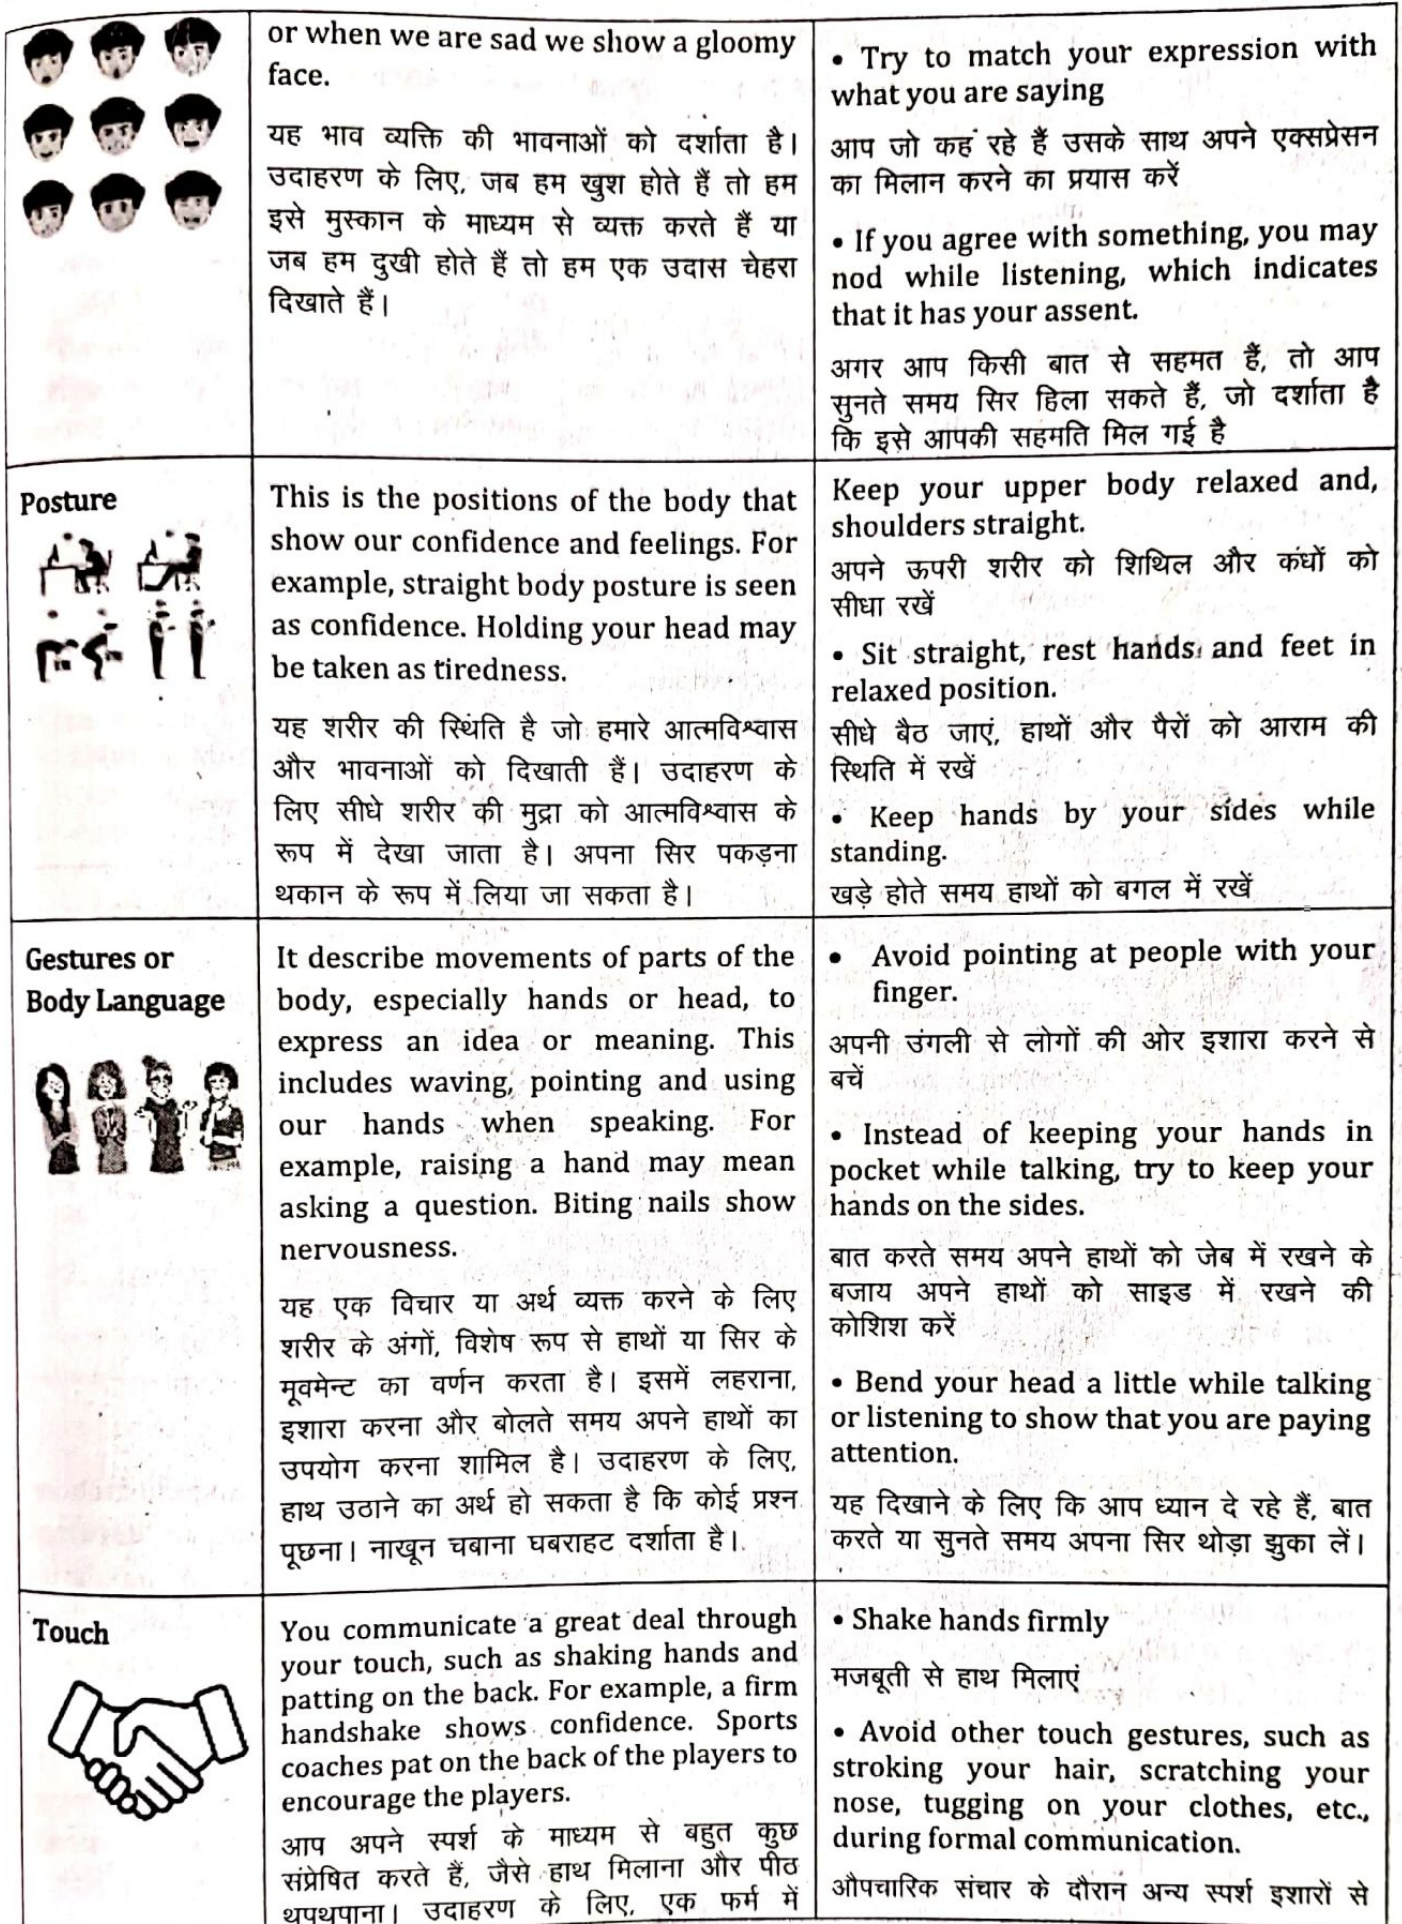 or when we are sad we show a gloomy
face.
यह भाव व्यक्ति की भावनाओं को दर्शाता है।
उदाहरण के लिए, जब हम खुश होते हैं तो हम
इसे मुस्कान के माध्यम से व्यक्त करते हैं या
जब हम दुखी होते हैं तो हम एक उदास चेहरा
दिखाते हैं।
• Try to match your expression with
what you are saying
आप जो कह रहे हैं उसके साथ अपने एक्सप्रेसन
का मिलान करने का प्रयास करें
• If you agree with something, you may
nod while listening, which indicates
that it has your assent.
अगर आप किसी बात से सहमत हैं, तो आप
सुनते समय सिर हिला सकते हैं, जो दर्शाता है
कि इसे आपकी सहमति मिल गई है
Posture
This is the positions of the body that
show our confidence and feelings. For
example, straight body posture is seen
as confidence. Holding your head may
be taken as tiredness.
यह शरीर की स्थिति है जो हमारे आत्मविश्वास
और भावनाओं को दिखाती हैं। उदाहरण के
लिए सीधे शरीर की मुद्रा को आत्मविश्वास के
रूप में देखा जाता है। अपना सिर पकड़ना
थकान के रूप में लिया जा सकता है।
Keep your upper body relaxed and,
shoulders straight.
अपने ऊपरी शरीर को शिथिल और कंधों को
सीधा रखें
• Sit straight, rest hands and feet in
relaxed position.
सीधे बैठ जाएं, हाथों और पैरों को आराम की
स्थिति में रखें
• Keep hands by your sides while
standing.
खड़े होते समय हाथों को बगल में रखें
Gestures or
Body Language
It describe movements of parts of the
body, especially hands or head, to
express an idea or meaning. This
includes waving, pointing and using
our hands when speaking. For
example, raising a hand may mean
asking a question. Biting nails show
nervousness.
यह एक विचार या अर्थ व्यक्त करने के लिए
शरीर के अंगों, विशेष रूप से हाथों या सिर के
मूवमेन्ट का वर्णन करता है। इसमें लहराना,
इशारा करना और बोलते समय अपने हाथों का
उपयोग करना शामिल है। उदाहरण के लिए,
हाथ उठाने का अर्थ हो सकता है कि कोई प्रश्न
पूछना। नाखून चबाना घबराहट दर्शाता है।
• Avoid pointing at people with your
finger.
अपनी उंगली से लोगों की ओर इशारा करने से
बचें
• Instead of keeping your hands in
pocket while talking, try to keep your
hands on the sides.
बात करते समय अपने हाथों को जेब में रखने के
बजाय अपने हाथों को साइड में रखने की
कोशिश करें
• Bend your head a little while talking
or listening to show that you are paying
attention.
यह दिखाने के लिए कि आप ध्यान दे रहे हैं, बात
करते या सुनते समय अपना सिर थोड़ा झुका लें।
Touch
You communicate a great deal through
your touch, such as shaking hands and
patting on the back. For example, a firm
handshake shows confidence. Sports
coaches pat on the back of the players to
encourage the players.
आप अपने स्पर्श के माध्यम से बहुत कुछ
संप्रेषित करते हैं, जैसे हाथ मिलाना और पीठ
थपथपाना। उदाहरण के लिए, एक फर्म में
• Shake hands firmly
मजबूती से हाथ मिलाएं
• Avoid other touch gestures, such as
stroking your hair, scratching your
nose, tugging on your clothes, etc.,
during formal communication.
औपचारिक संचार के दौरान अन्य स्पर्श इशारों से